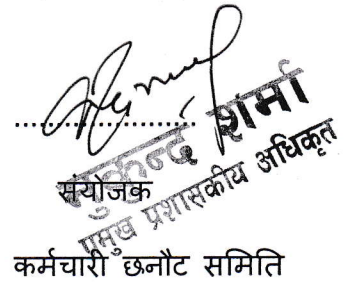 मुकुन्द शर्मा
प्रमुख प्रशासकीय अधिकृत
संयोजक
कर्मचारी छनौट समिति